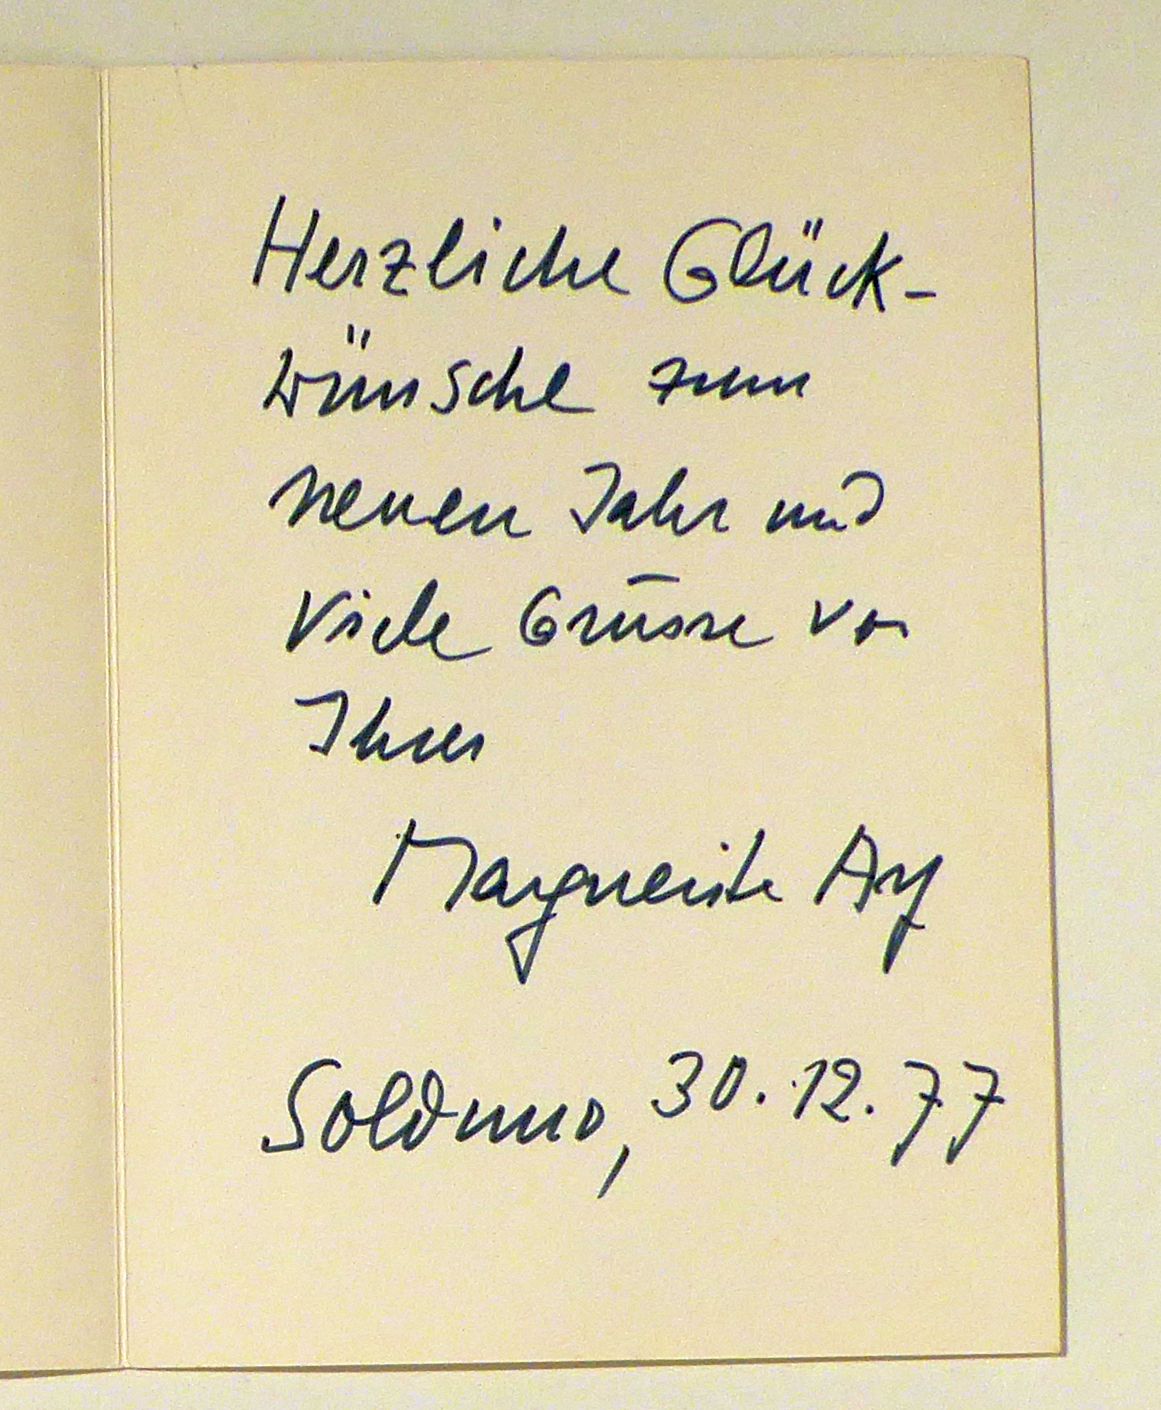 Herzliche Glück-
wünsche zum
neuen Jahr und
viele Grüsse von
Ihrer
Marguerite Ay
Solduno, 30.12.77